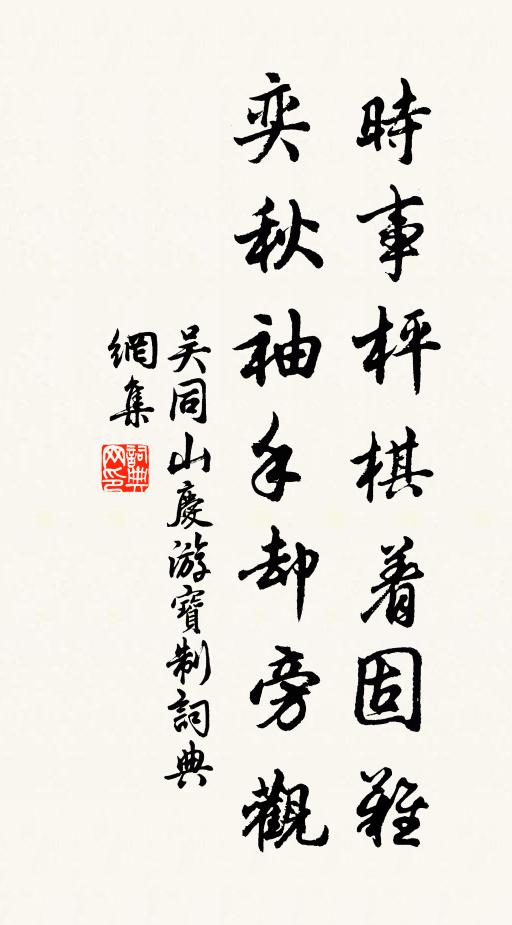 時事枰棋着固難
奕秋袖手却旁觀
吴同山慶游寶制詞典
網集
詞典
网印